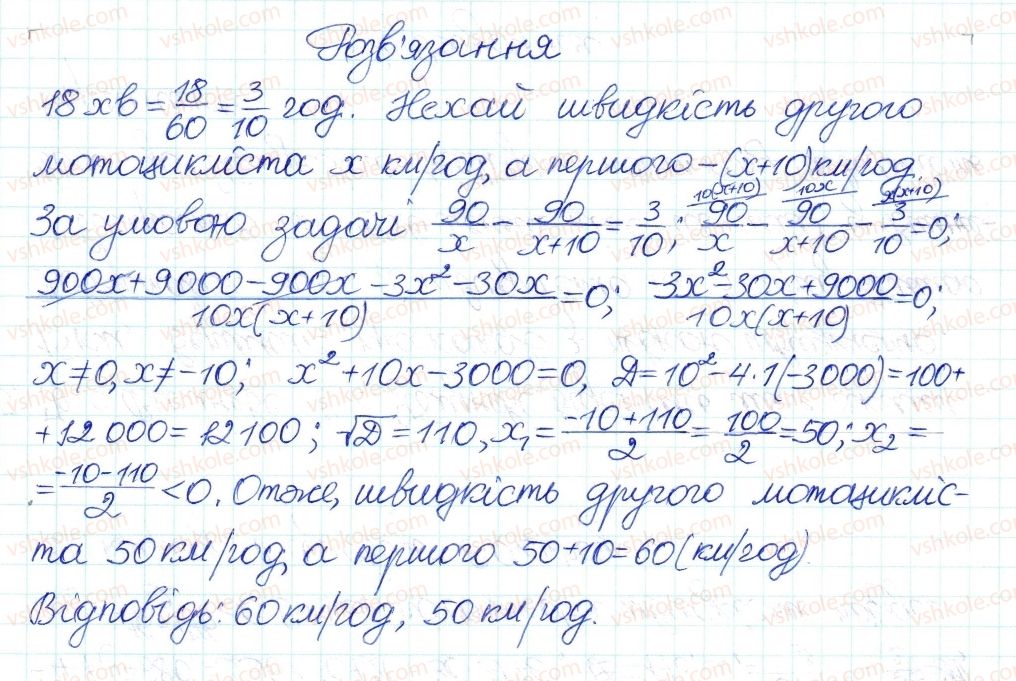 Розв'язання
18 хв = 18/60 = 3/10 год. Нехай швидкість другого
мотоцикліста x км/год, а першого – (x+10) км/год.
За умовою задачі 90/x – 90/(x+10) = 3/10; 10(x+10) 90/x – 10x 90/(x+10) – x(x+10) 3/10 = 0;
(900x+9000–900x–3x²–30x)/(10x(x+10)) = 0; (–3x²–30x+9000)/(10x(x+10)) = 0;
x≠0, x≠–10; x²+10x–3000=0, Д=10²–4·1(–3000)=100+
+12 000=12100; √Д=110, x₁=(–10+110)/2=100/2=50; x₂=
=(–10–110)/2<0. Отже, швидкість другого мотоцикліс-
та 50 км/год, а першого 50+10=60 (км/год)
Відповідь: 60 км/год, 50 км/год.
vshkole.com